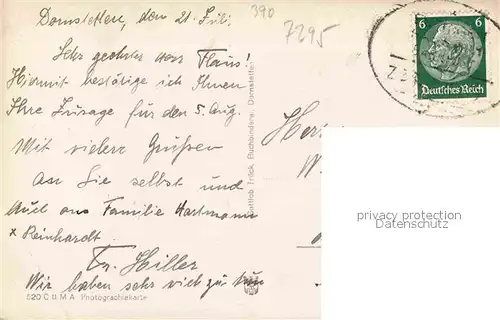 Dornstetten, den 21. Juli.
390
7295
6
Deutsches Reich
Sehr geehrter Herr Flaus!
Hiermit bestätige ich Ihnen
Ihre Zusage für den 5. Aug.
Mit vielen Grüßen
An Sie selbst und
Auch ans Familie Hartmann
x Reinhardt.
Fr. Hiller
Wir haben sehr viel zu tun
520 C II M A Photographiekarte
Gottlob Trück, Buchbinderei, Dornstetten
Her
W
privacy protection
Datenschutz